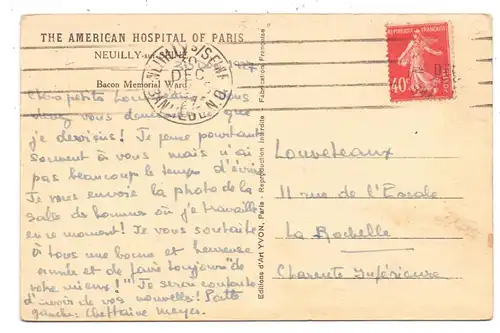 THE AMERICAN HOSPITAL OF PARIS
NEUILLY-sur-SEINE
Bacon Memorial Ward
Chers petits Louveteaux, vous
devez vous demander ce que
je deviens! Je pense pourtant
souvent à vous mais n'ai
pas beaucoup le temps d'écrire
Je vous envoie la photo de la
salle de hommes où je travaille
en ce moment! Je vous souhaite
à tous une bonne et heureuse
année et de faire toujours "de
votre mieux!" Je serai contente
d'avoir de vos nouvelles! Patte
gauche: Cheftaine Meyer.
Editions d'Art YVON, Paris - Reproduction interdite - Fabrication Française
NEUILLY-S-SEINE
DEC
REPUBLIQUE FRANÇAISE
40c
Louveteaux
11 rue de l'Escale
La Rochelle
Charente Inférieure